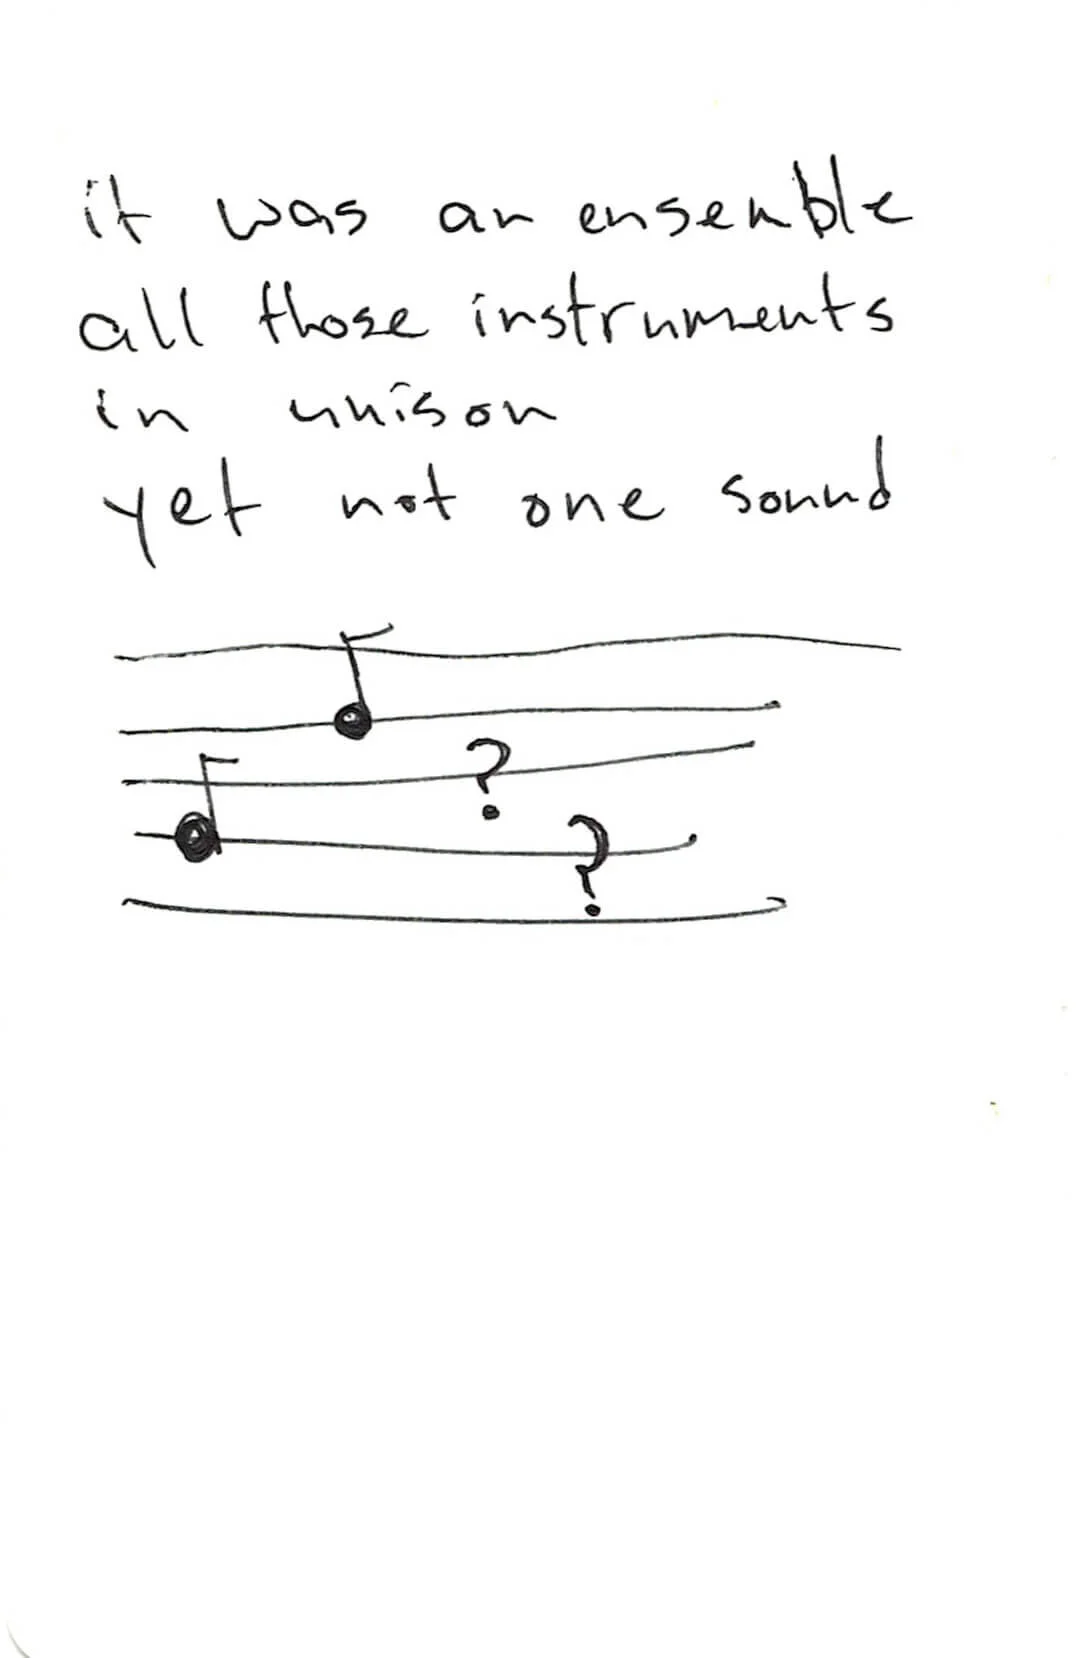 it was an ensemble
all those instruments
in unison
yet not one sound
? 
?